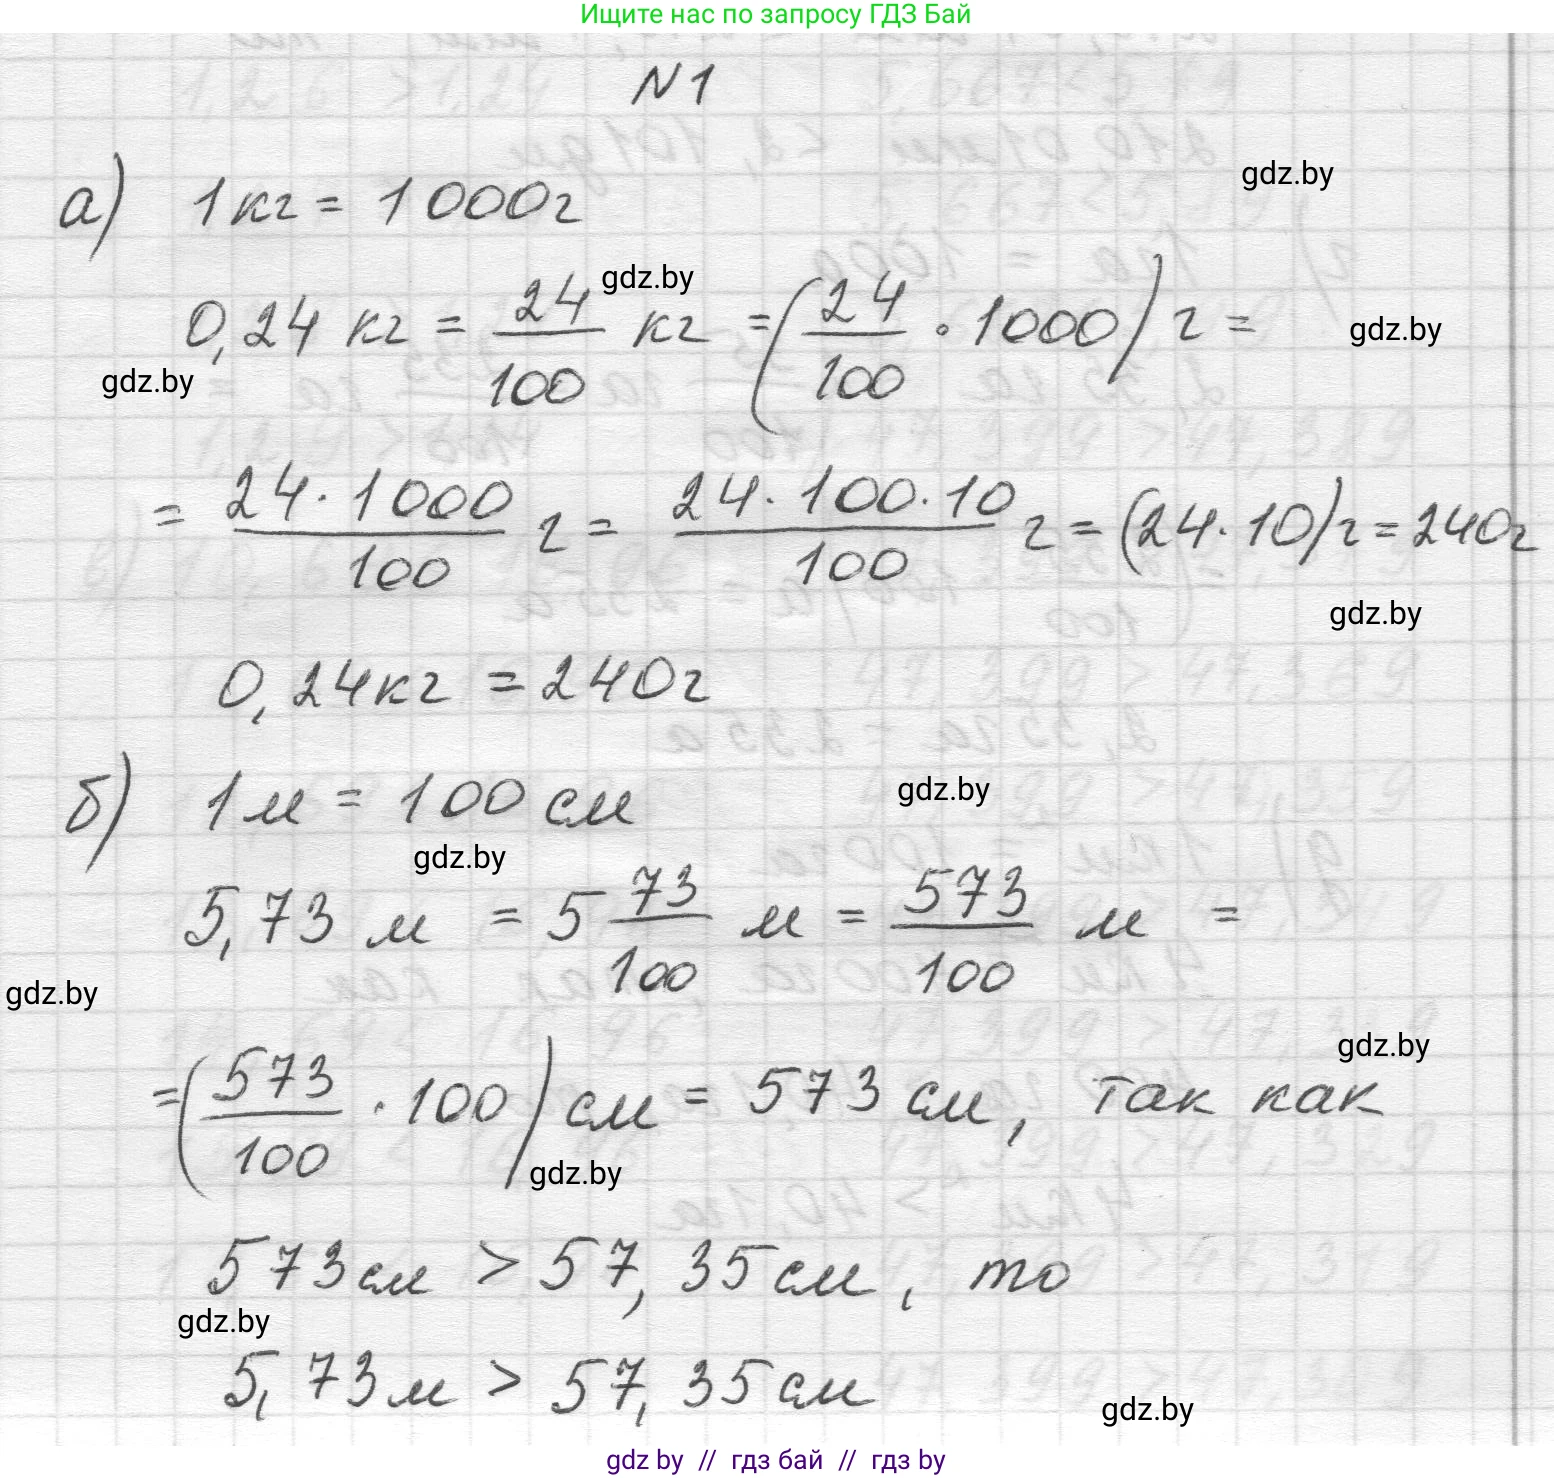 Ищите нас по запросу ГДЗ Бай
N 1
gdz.by
а) 1 кг = 1 000 г
gdz.by
0,24 кг = 24/100 кг = (24/100 · 1000) г =
gdz.by
gdz.by
= 24 · 1 000/100 г = 24 · 100 · 10/100 г = (24 · 10) г = 240 г
gdz.by
0,24 кг = 240 г
б) 1 м = 100 см
gdz.by
gdz.by
5,73 м = 5 73/100 м = 573/100 м =
gdz.by
gdz.by
= (573/100 · 100) см = 573 см, так как
gdz.by
573 см > 57,35 см, то
gdz.by
5,73 м > 57,35 см
gdz.by
gdz by // гдз бай // гдз by